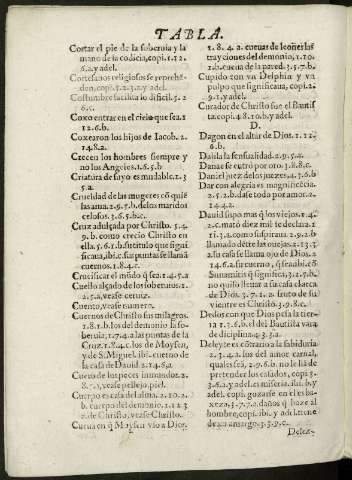 TABLA.
Cortar el pie de la soberuia y la
mano de la codicia, copi. 1.12
6.a. y adel.
Cortesanos religiosos se reprehen-
den, copi. 5.2.3. y adel.
Costumbre facilita lo dificil. 5.2
6.c.
Coxo entrar en el cielo que sea. 1
12.6.b.
Coxearon los hijos de Iacob. 2.
14 8.2.
Crecen los hombres siempre y
no los Angeles. 1.6 5.b
Criatura de suyo es mudable. 1.3
5.a.
Crueldad de las mugeres cõ quiẽ
las ama. 2.9 5.b. de los maridos
celosos. 3.6 5.b.c.
Cruz adulçada por Christo. 5.4
9.b. como crecio Christo en
ella. 5.6 1.b. su titulo que signi
fica ua, ibi. c. sus puntas se llamã
cuernos. 1.8 4.c.
Crucificar el mũdo q̃ sea. 1.4 5.a
Cuello alçado de los soberuios. 1.
2 5.a. vease ceruiz.
Cuento, vease numero.
Cuernos de Christo sus milagros.
1.8 1.b. los del demonio la so-
beruia; 1.7 4.a. las puntas de la
Cruz. 1.8 4.c. los de Moysen,
y de S. Miguel, ibi. cuerno de
la casa de Dauid. 2.1 4 6.a.
Cuero de los peces inmundos. 2.
8 7.a. vease pellejo, piel.
Cuerpo es casa del alma. 2.10 2.
b. cuerpo del demonio. 1.12 3
c. de Christo, vease Christo.
Cueua en q̃ Moysen vio a Dios.
1.8 4.a. cueuas de leones las
trayciones del demonio, 1.10
1.b. cueua de la pared. 3.5 7.b.
Cupido con vn Delphin y vn
pulpo que significaua, copi. 2.
9 1. y adel.
Curador de Christo fue el Bautis
ta. copi. 4 8.10.b. y adel.
D.
Dagon en el altar de Dios. 1.11 2.
6.b.
Dalila la sensualidad. 2.9 5.a.
Danae se entrò por oro. 3.8 8.c.
Daniel juez de los juezes. 4.3 6.b.
Dar con alegria es magnificẽcia.
2.5 2.b. dase todo por amor. 2.
1 4 4.a.
Dauid supo mas q̃ los viejos. 1.4
2.c. matò diez mil se declara. 1.
11 3.a. como suspiraua. 2.9 2.b
llamado detrè las ouejas. 2.13 3
a. su casa se llama ojo de Dios. 2.
1 4 6.a. su cuerno, q̃ sea, ibi. cõ
Sunamitis q̃ significa. 3.1 5.b.
no quiso lleuar a su casa el arca
de Dios. 3.7 1.a. fruto de su
vientre es Christo. 3.9 8.c.
Dedos con que Dios pesa la tier-
ra 1.3 6.b. el del Bautista vara
de disciplina. 4.3 3.a.
Deleyte es cõtrario a la sabiduria
2.3 4.a. los del amor carnal,
quales sea, 2.9 6.b. no le hã de
pretender los casados, copi. 3.
3 6.a. y adel. es miseria. ibi. b. y
adel. copi. gozarse en el es ba-
xeza. 3.7 7.a. daños q̃ haze al
hombre, copi. ibi. y adel. tiene
dexo amargo. 3.3 9.c.
Deleẽ-